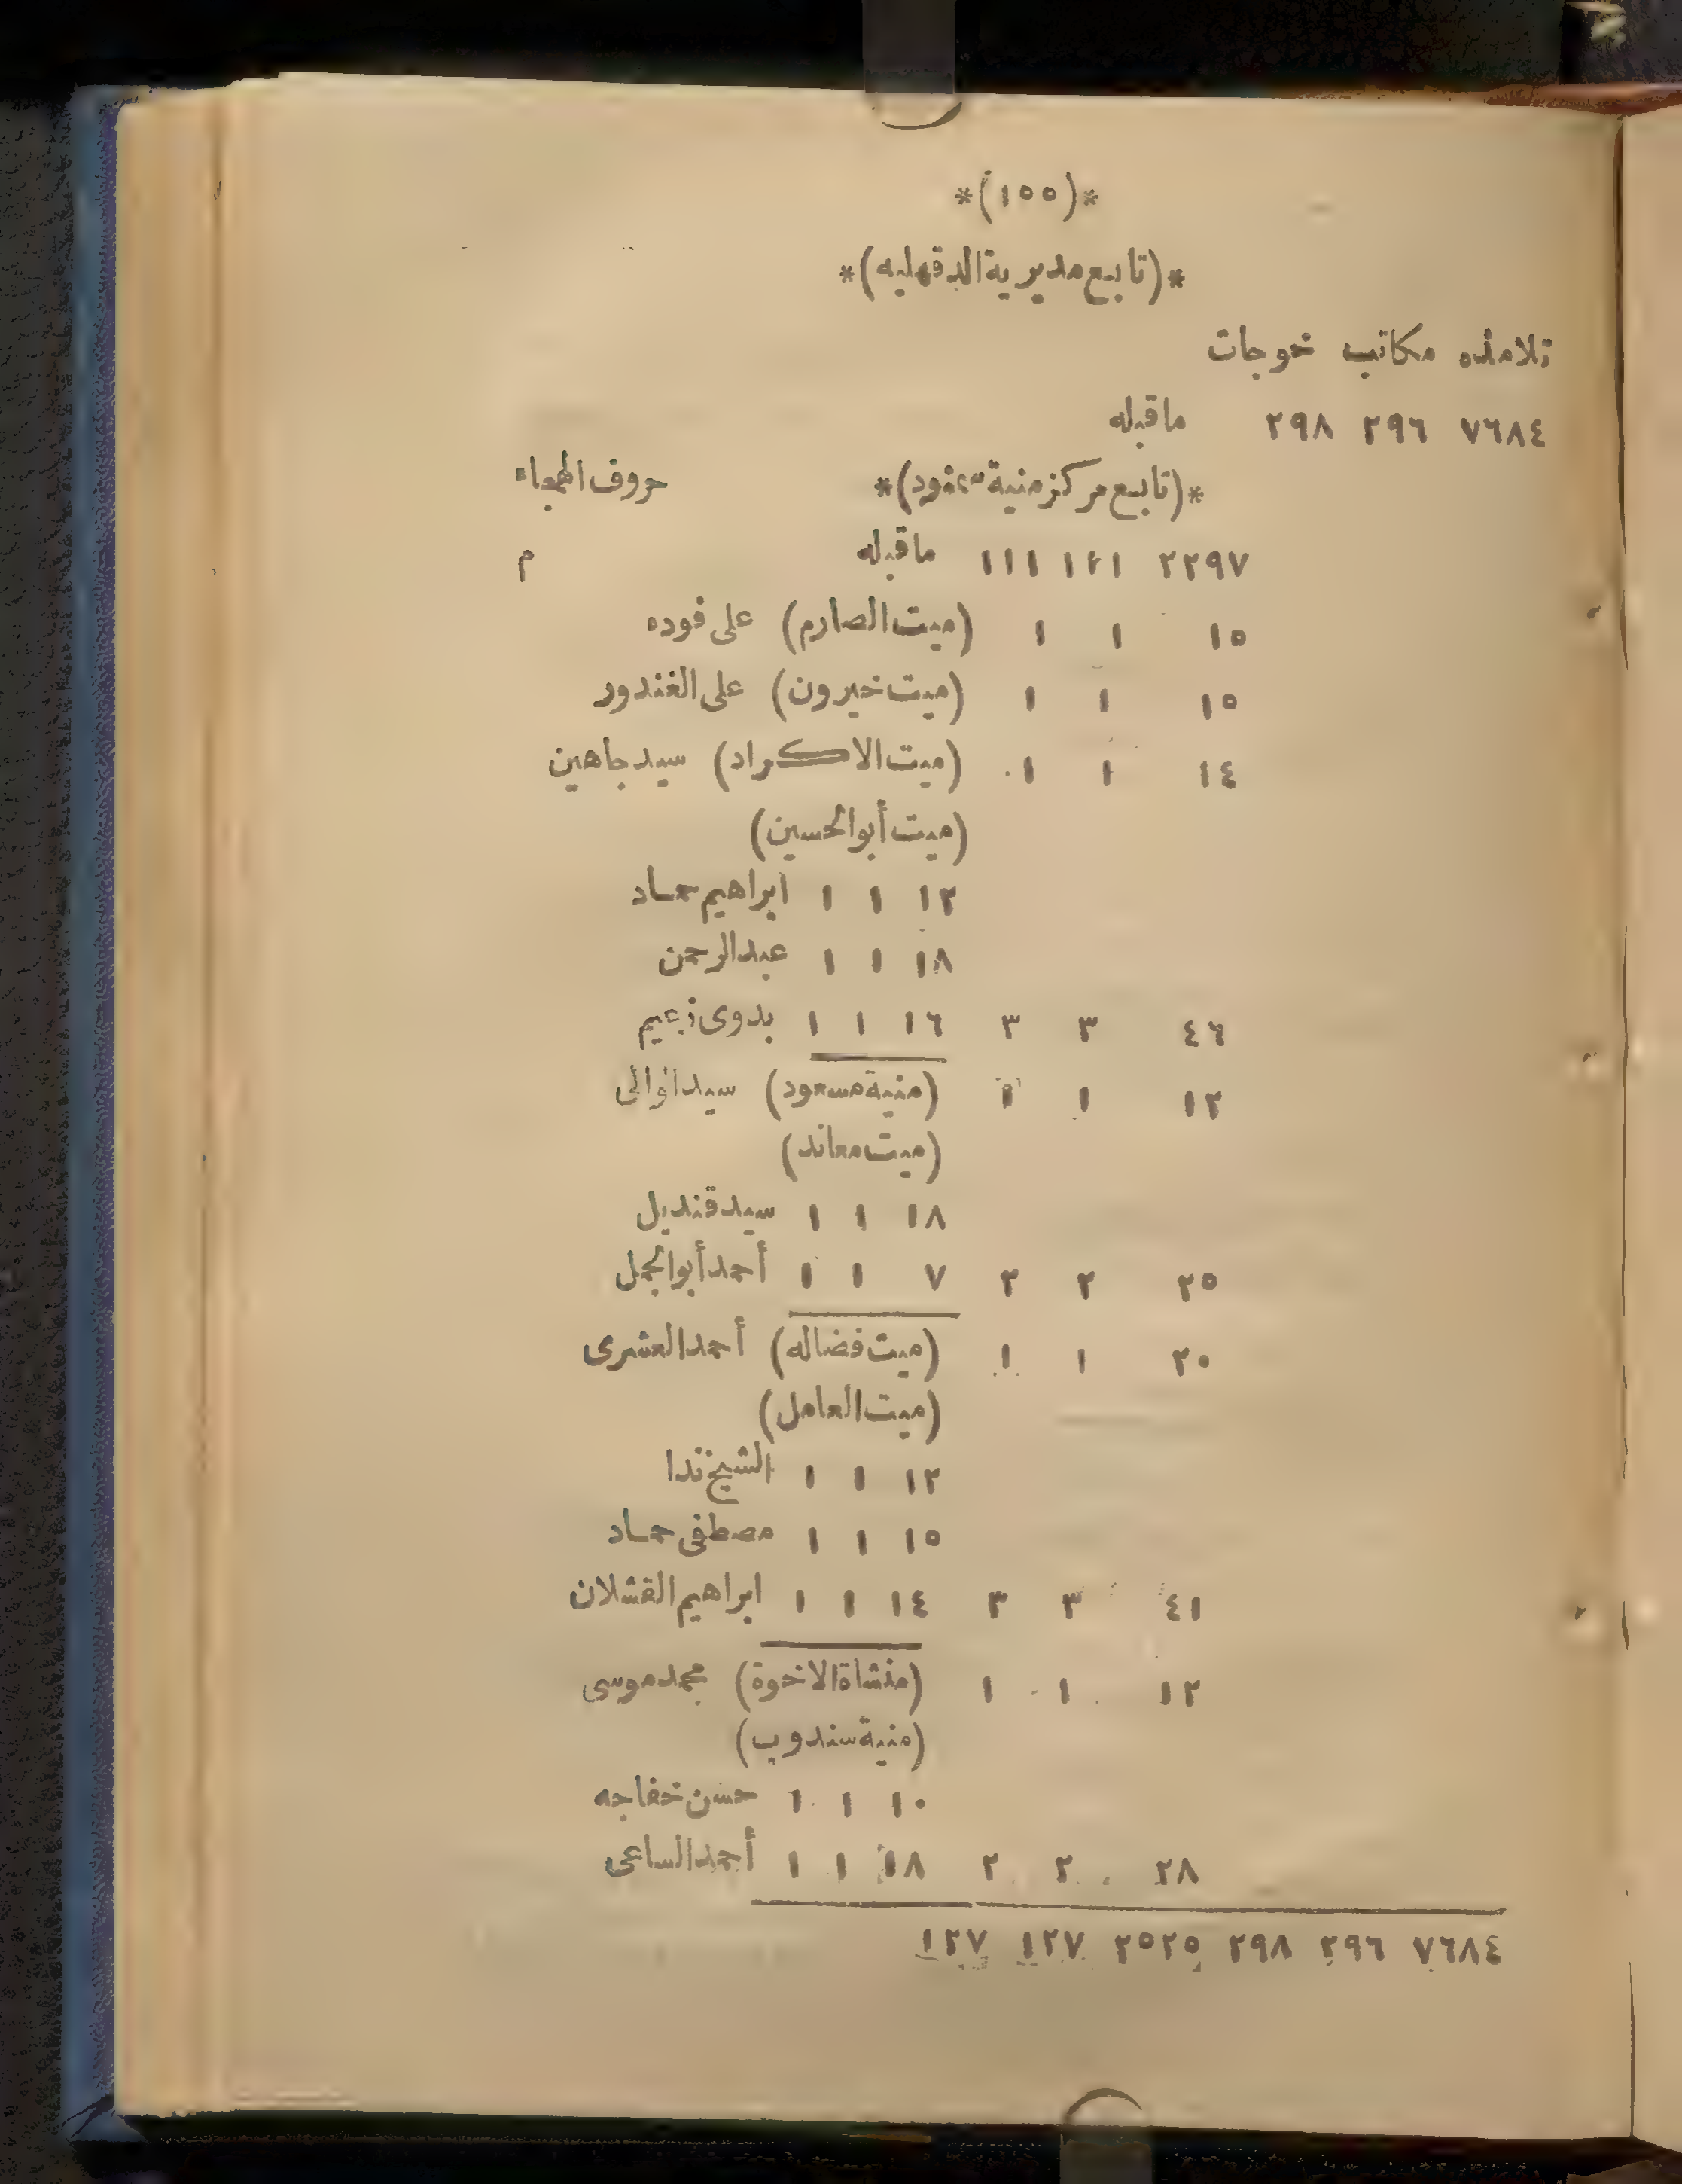 *(١٥٥)*
*(تابع مديرية الدقهليه)*
تلامذه مكاتب خوجات
٧٦٨٤ ٢٩٦ ٢٩٨ ماقبله
*(تابع مركز منية سمنود)* حروف الهجاء
٢٢٩٧ ١١١ ١١١ ماقبله م
١٥ ١ ١ (ميت الصارم) على فوده
١٥ ١ ١ (ميت خيرون) على الغندور
١٤ ١ ١ (ميت الاكراد) سيد جاهين
(ميت أبوالحسين)
١٢ ١ ١ ابراهيم حماد
١٨ ١ ١ عبد الرحمن
٤٦ ٣ ٣ ١٦ ١ ١ بدوى نعيم
١٢ ١ ١ (منية مسعود) سيد
(ميت معاند)
١٨ ١ ١ سيد قنديل
٢٥ ٢ ٢ ٧ ١ ١ أحمد أبوالجمل
٢٠ ١ ١ (ميت فضاله) أحمد العشرى
(ميت العامل)
١٢ ١ ١ الشيخ ندا
١٥ ١ ١ مصطفى حماد
٤١ ٣ ٣ ١٤ ١ ١ ابراهيم القشلان
١٢ ١ ١ (منشاة الاخوة) محمد موسى
(منية سندوب)
١٠ ١ ١ حسن خفاجه
٢٨ ٢ ٢ ١٨ ١ ١ أحمد الساعى
٧٦٨٤ ٢٩٦ ٢٩٨ ٢٥٢٥ ١٢٧ ١٢٧